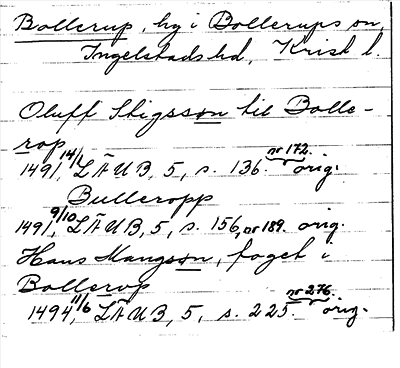 Bollerup, hg i Bollerups sn,
Ingelstads hd, Krist l.
Oluff Stigsson til Bolle-
rop
1491, 14/1 LÄUB, 5, s. 136. nr 172. orig.
Bulleropp
1491, 9/10 LÄUB, 5, s. 156, nr 189. orig.
Hans Mangson, foget i
Bollerop
1494, 11/6 LÄUB, 5, s. 225. nr 276. orig.